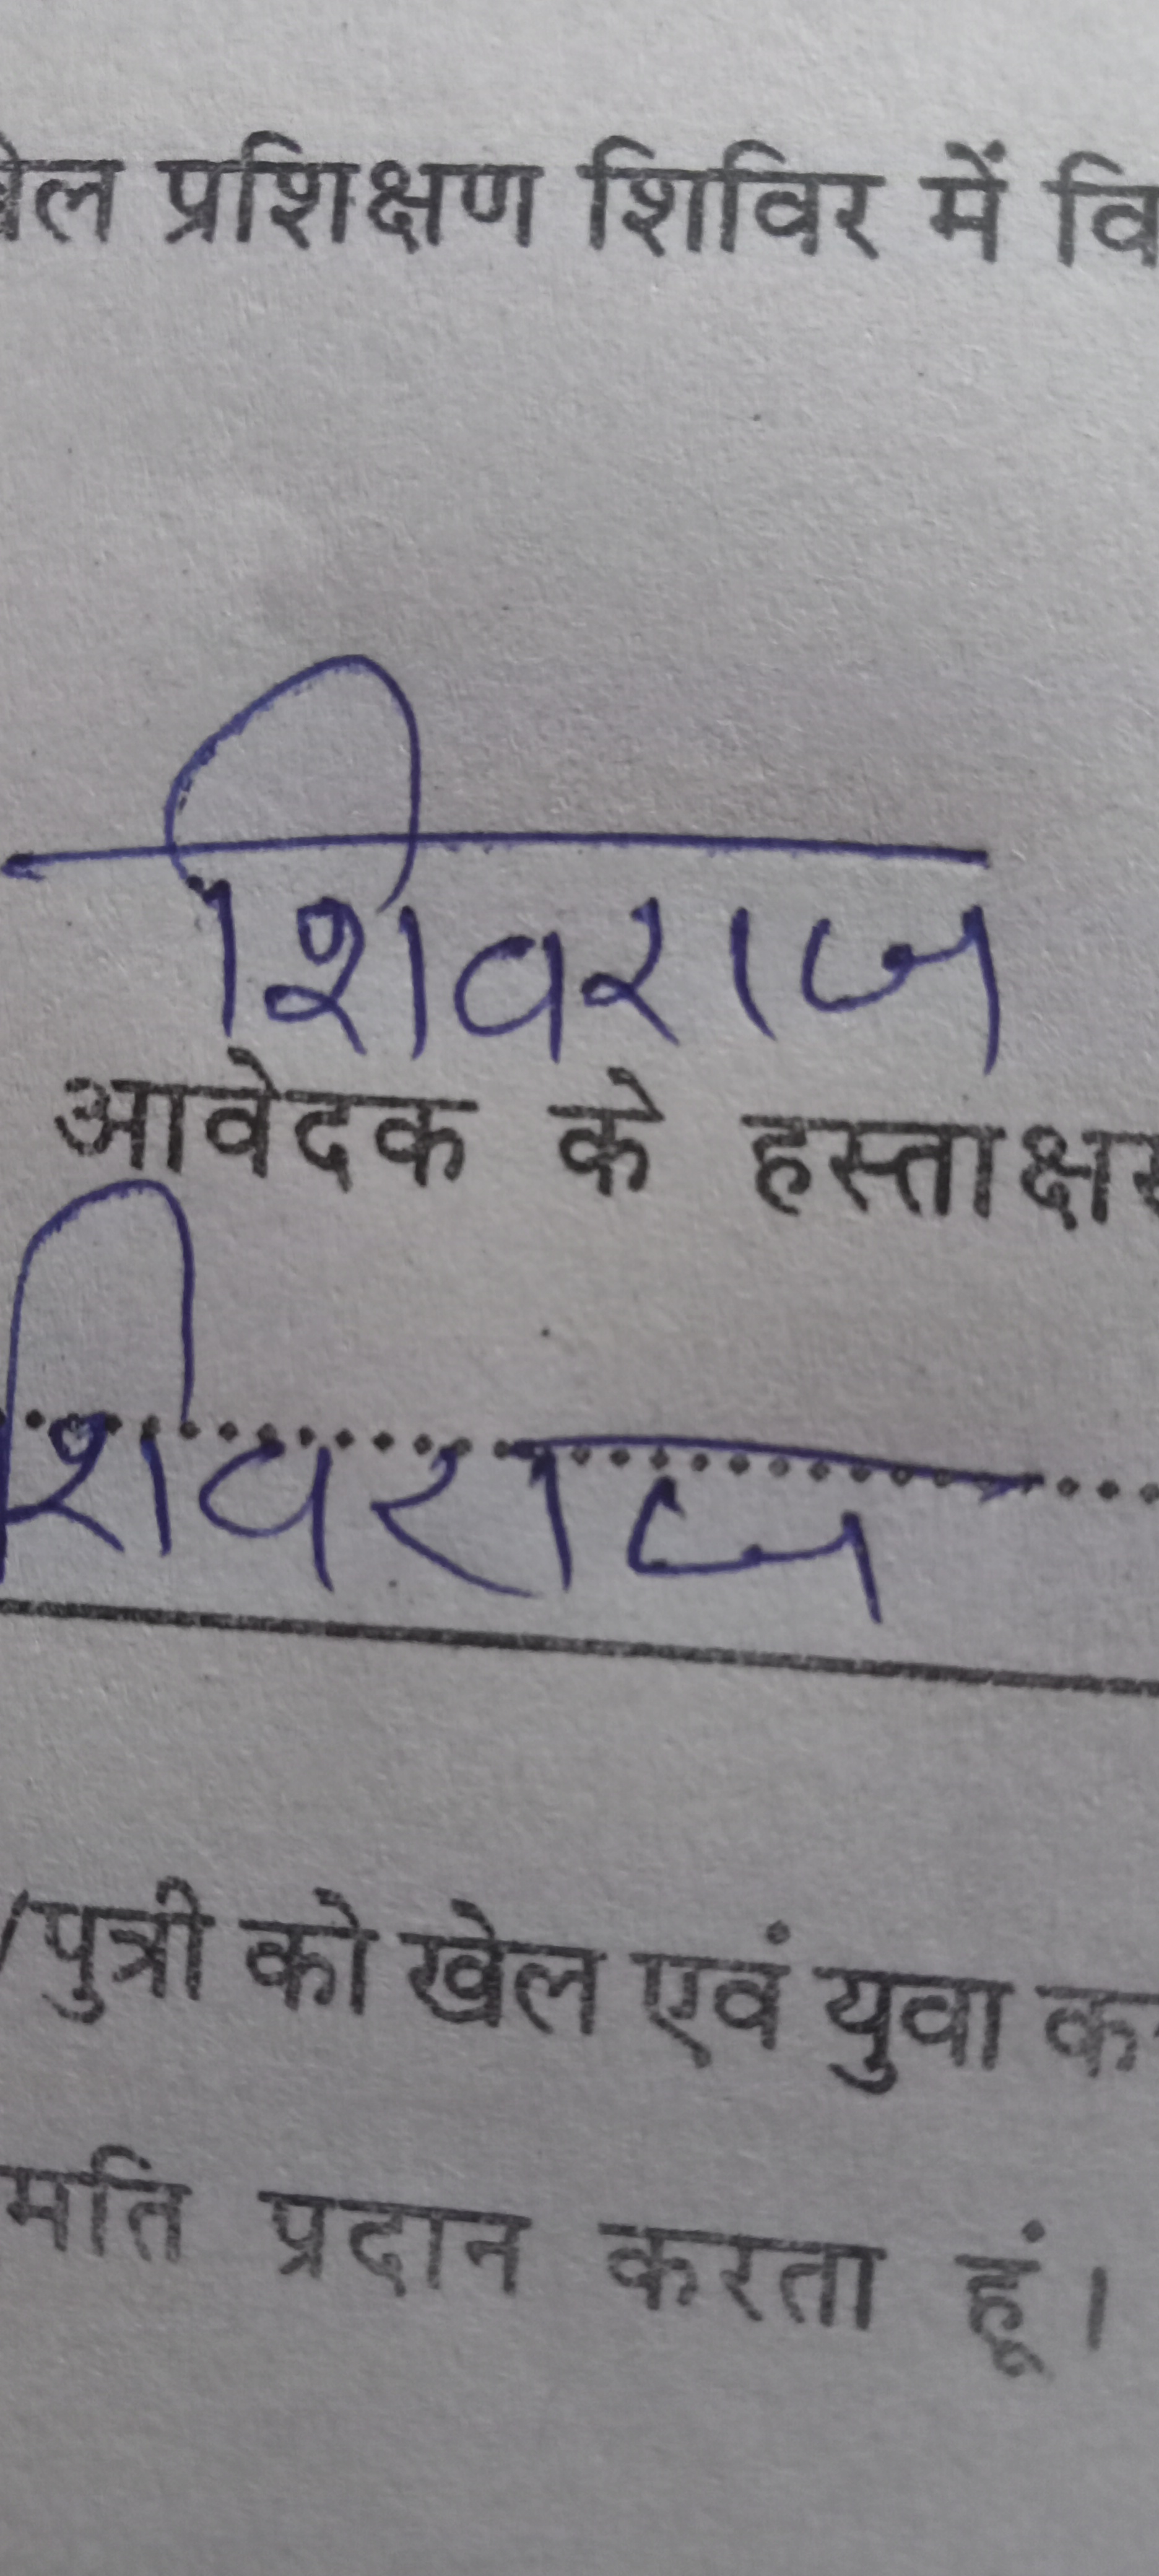 खेल प्रशिक्षण शिविर में वि
शिवराज
आवेदक के हस्ताक्षर
शिवराज
/पुत्री को खेल एवं युवा क
मति प्रदान करता हूं।